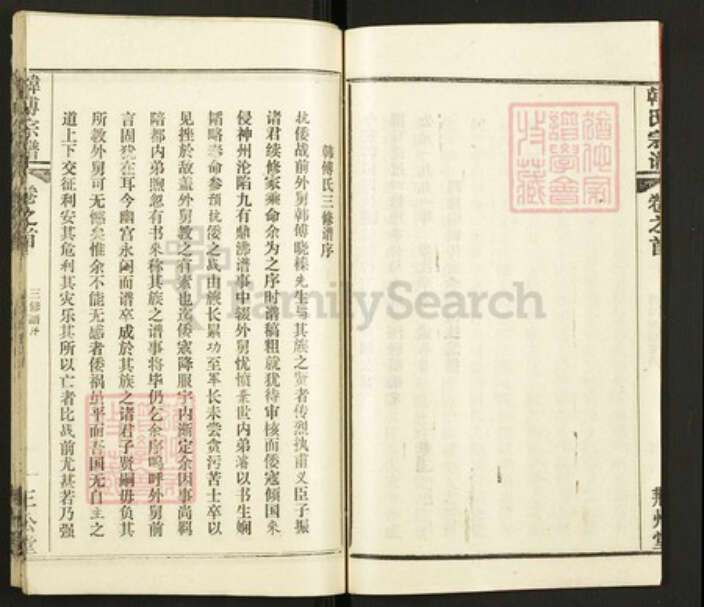 韩氏宗谱
卷之首
荆州堂
韩傅氏三修谱序
抗倭战前外舅韩傅晓 先生与其族之贤者传烈执甫义臣子振
诸君续修家乘命余为之序时谱稿粗就犹待审核而倭寇倾国来
侵神州沦陷九有鼎沸谱事中辍外舅忧愤弃世内弟 以书生娴
韬略奉命参预抗倭之战由族长累功至军长未尝贪污苦士卒以
见挫於敌盖外舅教之有素也迨倭寇降服宇内渐定余因事尚羁
陪都内弟 忽有书来称其族之谱事将毕仍乞余序呜呼外舅前
言固犹在耳今幽宫永闭而谱卒成於其族之诸君子贤嗣毋负其
所教外舅可无憾矣惟余不能无感者倭祸 平而吾国无自主之
道上下交征利安其危利其灾乐其所以亡者比战前尤甚若乃强
韩傅宗谱
卷之首
三修谱序
一
三公堂